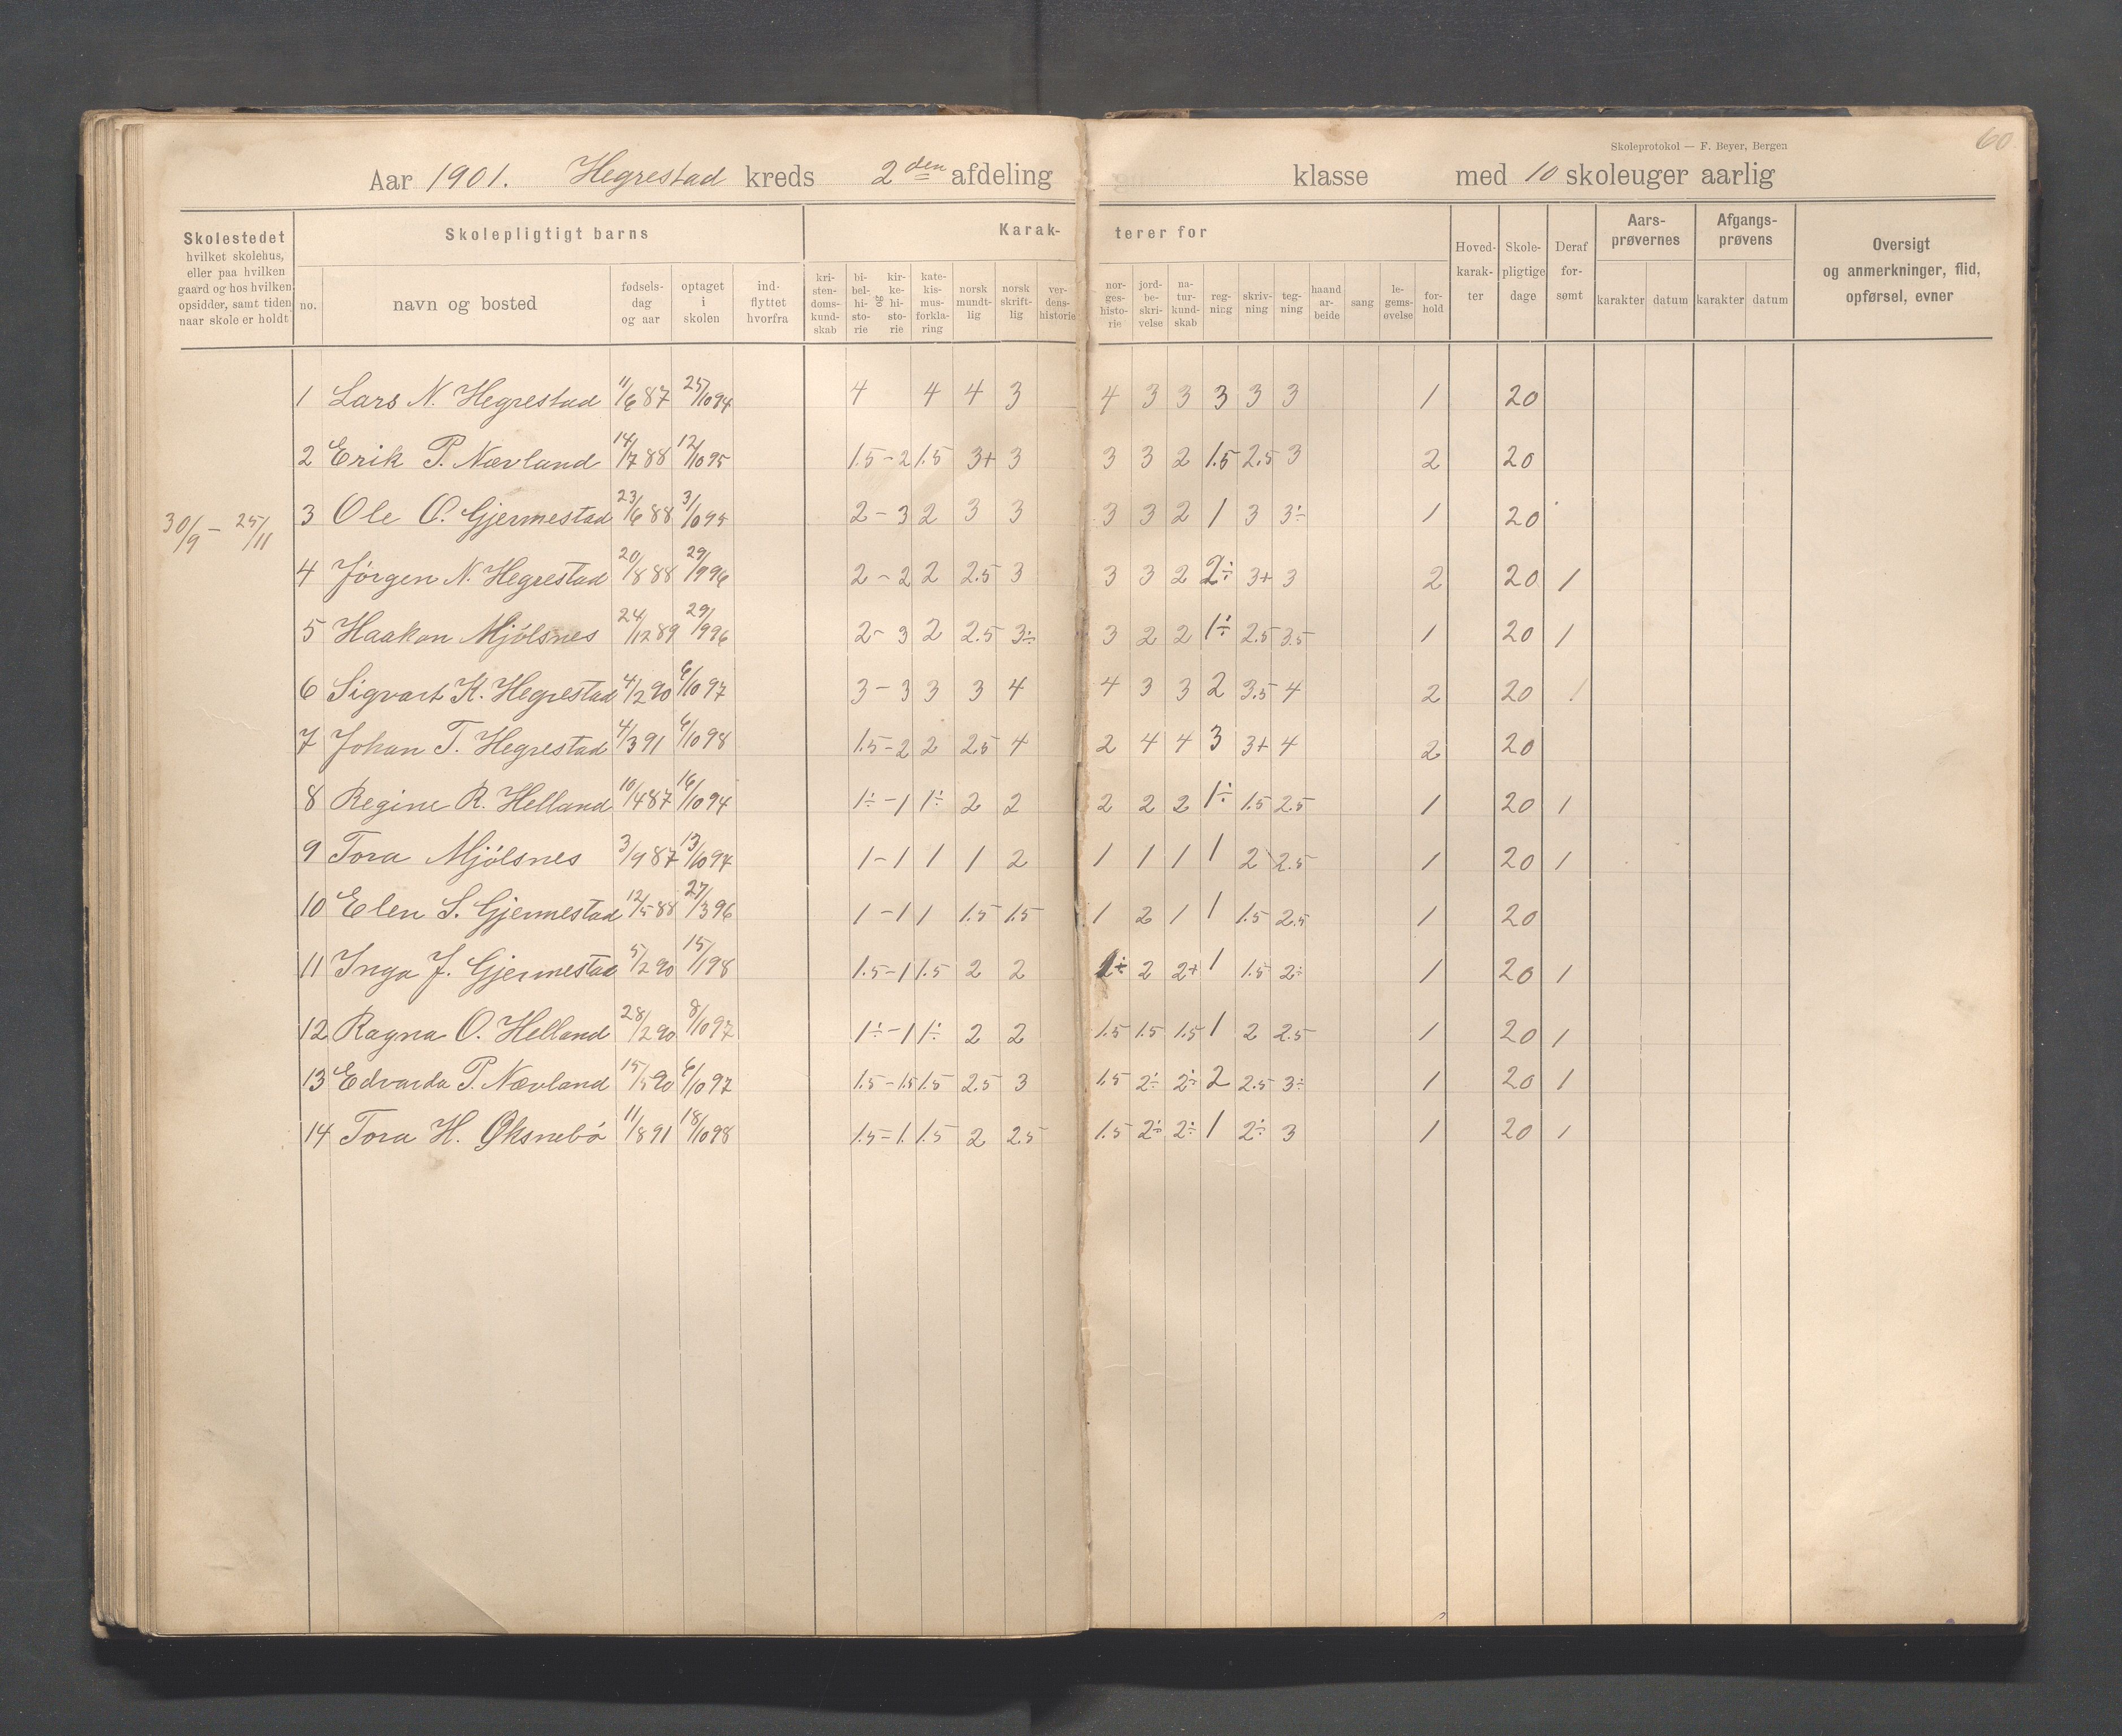 60
Skoleprotokol — F. Beyer, Bergen
Aar 1901. Hegrestad kreds 2den afdeling klasse med 10 skoleuger aarlig
Skolestedet hvilket skolehus, eller paa hvilken gaard og hos hvilken opsidder, samt tiden naar skole er holdt
Skolepligtigt barns
Karak-terer for
no. navn og bosted fødsels-dag og aar optaget i skolen ind-flyttet hvorfra
kri-sten-doms-kund-skab bi-bel-hi-sto-rie og kir-ke-hi-sto-rie kate-kis-mus-forkla-ring norsk mundt-lig norsk skrift-lig ver-dens-historie
nor-ges-histo-rie jord-be-skri-velse na-tur-kund-skab reg-ning skriv-ning teg-ning haand ar-beide sang le-gems-øvelse for-hold
Hoved-karak-ter Skole-pligtige dage Deraf for-sømt Aars-prøvernes karakter datum Afgangs-prøvens karakter datum
Oversigt og anmerkninger, flid, opførsel, evner
1 Lars N. Hegrestad 11/6 87 25/10 94 4 4 4 3 4 3 3 3 3 3 1 20
2 Erik P. Nævland 14/7 88 12/10 95 1.5 - 2 1.5 3+ 3 3 3 2 1.5 2.5 3 2 20
30/9 - 25/11
3 Ole O. Gjermestad 23/6 88 3/10 95 2 - 3 2 3 3 3 3 2 1 3 3÷ 1 20
4 Jörgen N. Hegrestad 20/8 88 29/9 96 2 - 2 2 2.5 3 3 3 2 2÷ 3+ 3 2 20 1
5 Haakon Mjölsnes 24/12 89 29/9 96 2 - 3 2 2.5 3÷ 3 2 2 1÷ 2.5 3.5 1 20 1
6 Sigvart K. Hegrestad 4/2 90 6/10 97 3 - 3 3 3 4 4 3 3 2 3.5 4 2 20 1
7 Johan T. Hegrestad 4/3 91 6/10 98 1.5 - 2 2 2.5 4 2 4 4 3 3+ 4 2 20
8 Regine R. Helland 10/4 87 16/10 94 1÷ - 1 1÷ 2 2 2 2 2 1÷ 1.5 2.5 1 20 1
9 Tora Mjölsnes 3/9 87 13/10 94 1 - 1 1 1 2 1 1 1 1 2 2.5 1 20 1
10 Elen S. Gjermestad 12/5 88 27/3 96 1 - 1 1 1.5 1.5 1 2 1 1 1.5 2.5 1 20
11 Inga J. Gjermestad 5/2 90 15/1 98 1.5 - 1 1.5 2 2 1÷ 2 2+ 1 1.5 2÷ 1 20 1
12 Ragna O. Helland 28/2 90 8/10 97 1÷ - 1 1÷ 2 2 1.5 1.5 1.5 1 2 2.5 1 20 1
13 Edvarda P. Nævland 15/5 90 6/10 97 1.5 - 1.5 1.5 2.5 3 1.5 2÷ 2÷ 2 2.5 3÷ 1 20 1
14 Tora H. Øksnebö 11/8 91 18/10 98 1.5 - 1. 1.5 2 2.5 1.5 2÷ 2÷ 1 2÷ 3 1 20 1